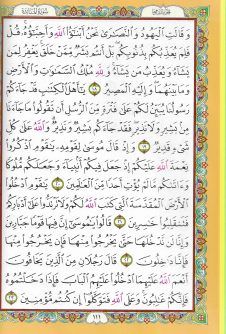 وَقَالَتِ الْيَهُودُ وَالنَّصَارَىٰ نَحْنُ أَبْنَاءُ اللَّهِ وَأَحِبَّاؤُهُ قُلْ
فَلِمَ يُعَذِّبُكُم بِذُنُوبِكُم بَلْ أَنتُم بَشَرٌ مِّمَّنْ خَلَقَ يَغْفِرُ لِمَن
يَشَاءُ وَيُعَذِّبُ مَن يَشَاءُ وَلِلَّهِ مُلْكُ السَّمَاوَاتِ وَالْأَرْضِ
وَمَا بَيْنَهُمَا وَإِلَيْهِ الْمَصِيرُ ١٨ يَا أَهْلَ الْكِتَابِ قَدْ جَاءَكُمْ
رَسُولُنَا يُبَيِّنُ لَكُمْ عَلَىٰ فَتْرَةٍ مِّنَ الرُّسُلِ أَن تَقُولُوا مَا جَاءَنَا
مِن بَشِيرٍ وَلَا نَذِيرٍ فَقَدْ جَاءَكُم بَشِيرٌ وَنَذِيرٌ وَاللَّهُ عَلَىٰ كُلِّ
شَيْءٍ قَدِيرٌ ١٩ وَإِذْ قَالَ مُوسَىٰ لِقَوْمِهِ يَا قَوْمِ اذْكُرُوا
نِعْمَةَ اللَّهِ عَلَيْكُمْ إِذْ جَعَلَ فِيكُمْ أَنبِيَاءَ وَجَعَلَكُم مُّلُوكًا
وَآتَاكُم مَّا لَمْ يُؤْتِ أَحَدًا مِّنَ الْعَالَمِينَ ٢٠ يَا قَوْمِ ادْخُلُوا
الْأَرْضَ الْمُقَدَّسَةَ الَّتِي كَتَبَ اللَّهُ لَكُمْ وَلَا تَرْتَدُّوا عَلَىٰ أَدْبَارِكُمْ
فَتَنقَلِبُوا خَاسِرِينَ ٢١ قَالُوا يَا مُوسَىٰ إِنَّ فِيهَا قَوْمًا جَبَّارِينَ
وَإِنَّا لَن نَّدْخُلَهَا حَتَّىٰ يَخْرُجُوا مِنْهَا فَإِن يَخْرُجُوا مِنْهَا
فَإِنَّا دَاخِلُونَ ٢٢ قَالَ رَجُلَانِ مِنَ الَّذِينَ يَخَافُونَ
أَنْعَمَ اللَّهُ عَلَيْهِمَا ادْخُلُوا عَلَيْهِمُ الْبَابَ فَإِذَا دَخَلْتُمُوهُ
فَإِنَّكُمْ غَالِبُونَ وَعَلَى اللَّهِ فَتَوَكَّلُوا إِن كُنتُم مُّؤْمِنِينَ ٢٣
١١١